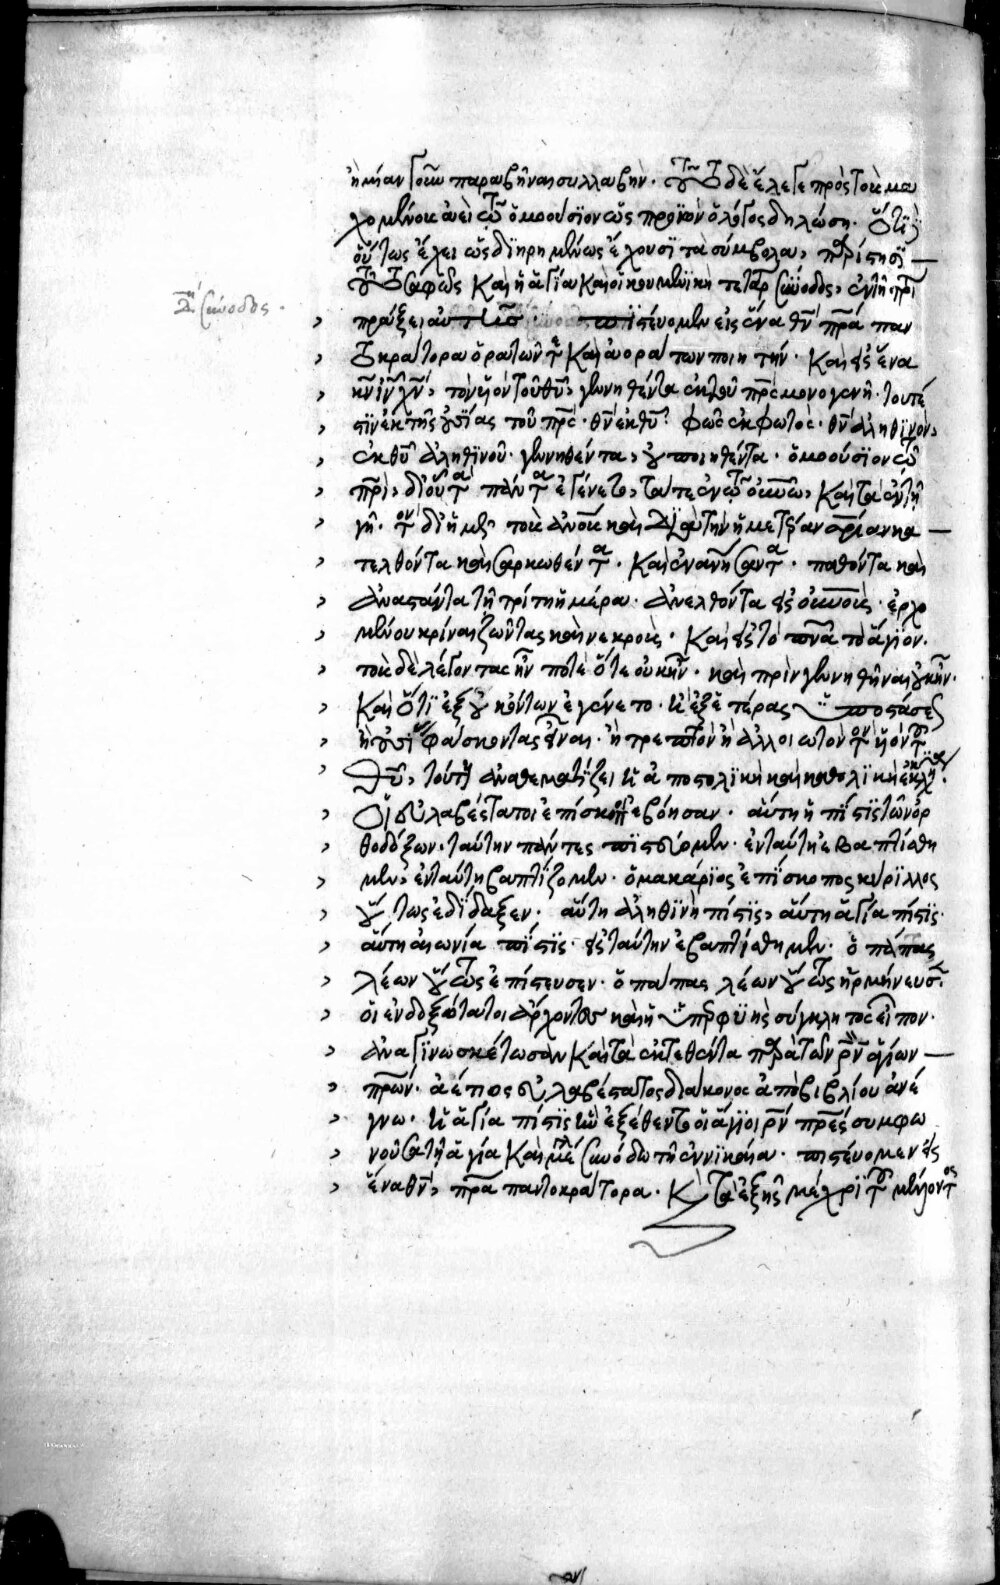 ἢ μίαν γοῦν παραβῆναι συλλαβήν. τοῦτο δὲ ἔλεγε πρὸς τοὺς μα
χομένους ἀεὶ τῷ ὁμοούσιον ὡς προϊὼν ὁ λόγος δηλώσῃ. ὅτι
οὕτως ἔχει ὡς διῃρημένως ἔχουσι τὰ σύμβολα, παρίστησι
τοῦτο σαφῶς καὶ ἡ ἁγία καὶ οἰκουμενικὴ τετάρτη σύνοδος, ἐν τῇ
δ΄ σύνοδος.
πράξει αὐτῆς. πιστεύομεν εἰς ἕνα θν̄ πρ̄α παν
τοκράτορα ὁρατῶν τε καὶ ἀοράτων ποιητήν. καὶ εἰς ἕνα
κν̄ ιν̄ χν̄, τὸν υἱὸν τοῦ θῡ, γεννηθέντα ἐκ τοῦ πρ̄ς μονογενῆ. τουτέ
στιν ἐκ τῆς οὐσίας τοῦ πρ̄ς. θν̄ ἐκ θῡ. φῶς ἐκ φωτός. θν̄ ἀληθινὸν,
ἐκ θῡ ἀληθινοῦ. γεννηθέντα, οὐ ποιηθέντα. ὁμοούσιον τῷ
πρ̄ι, δι' οὗ τὰ πάντα ἐγένετο, τά τε ἐν τῷ οὐνῶ, καὶ τὰ ἐν τῇ
γῇ. τὸν δι' ἡμᾶς τοὺς ἀνους καὶ διὰ τὴν ἡμετέραν σρίαν κα
τελθόντα καὶ σαρκωθέντα. καὶ ἐνανήσαντα. παθόντα καὶ
ἀναστάντα τῇ τρίτῃ ἡμέρα. ἀνελθόντα εἰς οὐνους. ἐρχό
μενον κρίναι ζῶντας καὶ νεκρούς. καὶ εἰς τὸ πνᾱ τὸ ἅγιον.
τοὺς δὲ λέγοντας ἦν ποτὲ ὅτε οὐκ ἦν. καὶ πρὶν γεννηθῆναι οὐκ ἦν.
καὶ ὅτι ἐξ οὐκ ὄντων ἐγένετο. ἢ ἐξ ἑτέρας ὑποστάσεως
ἢ οὐσίας φάσκοντας εἶναι. ἢ τρεπτὸν ἢ ἀλλοιωτὸν τὸν υἱὸν τοῦ
θῡ, τούτους ἀναθεματίζει ἡ ἀποστολικὴ καὶ καθολικὴ ἐκκλησία.
Οἱ εὐλαβέστατοι ἐπίσκοποι ἐβόησαν. αὕτη ἡ πίστις τῶν ὀρ
θοδόξων. ταύτην πάντες πιστεύομεν. ἐν ταύτῃ ἐβαπτίσθη
μεν, ἐν ταύτῃ βαπτίζομεν. ὁ μακάριος ἐπίσκοπος κύριλλος
οὕτως ἐδίδαξεν. αὕτη ἀληθινὴ πίστις, αὕτη ἁγία πίστις.
αὕτη αἰωνία πίστις. εἰς ταύτην ἐβαπτίσθημεν. ὁ πάπας
λέων οὕτως ἐπίστευσεν. ὁ πάπας λέων οὕτως ἡρμήνευσεν.
οἱ ἐνδοξότατοι ἄρχοντες καὶ ἡ ὑπερφυὴς σύγκλητος εἶπον.
ἀναγινωσκέτωσαν καὶ τὰ ἐκτεθέντα παρὰ τῶν ρν̄ ἁγίων
πρ̄ων. ἀέτιος εὐλαβέστατος διάκονος ἀπὸ βιβλίου ἀνέ
γνω. ἡ ἁγία πίστις ἣν ἐξέθεντο οἱ ἅγιοι ρν̄ πρ̄ες συμφω
νοῦσα τῇ ἁγία καὶ μεγάλῃ συνόδω τῇ ἐν νικαία. πιστεύομεν εἰς
ἕνα θν̄, πρ̄α παντοκράτορα. καὶ τὰ ἑξῆς μέχρι τοῦ μέλλοντος